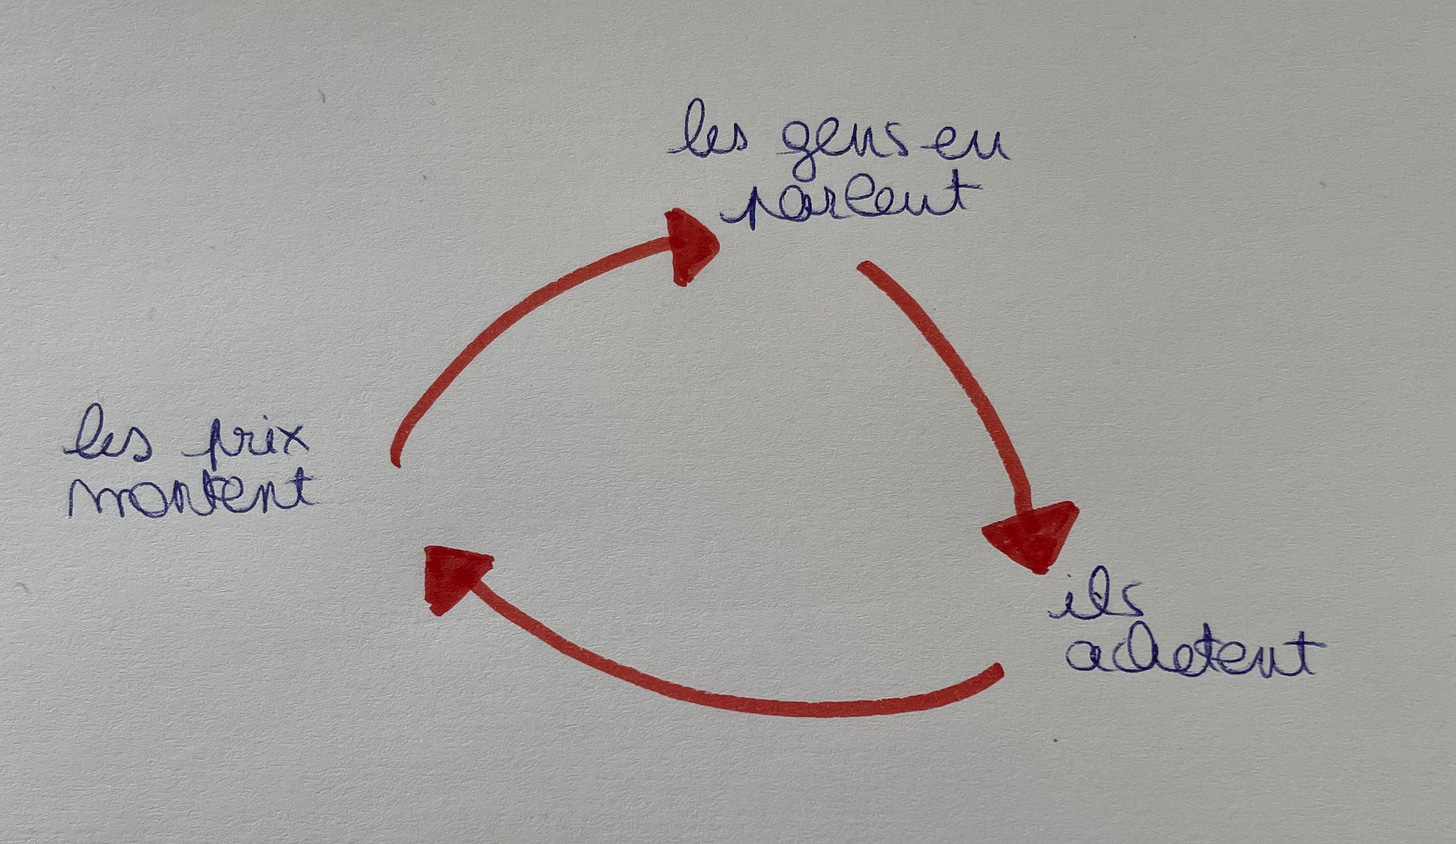 les gens en
parlent
les prix
montent
ils
achetent